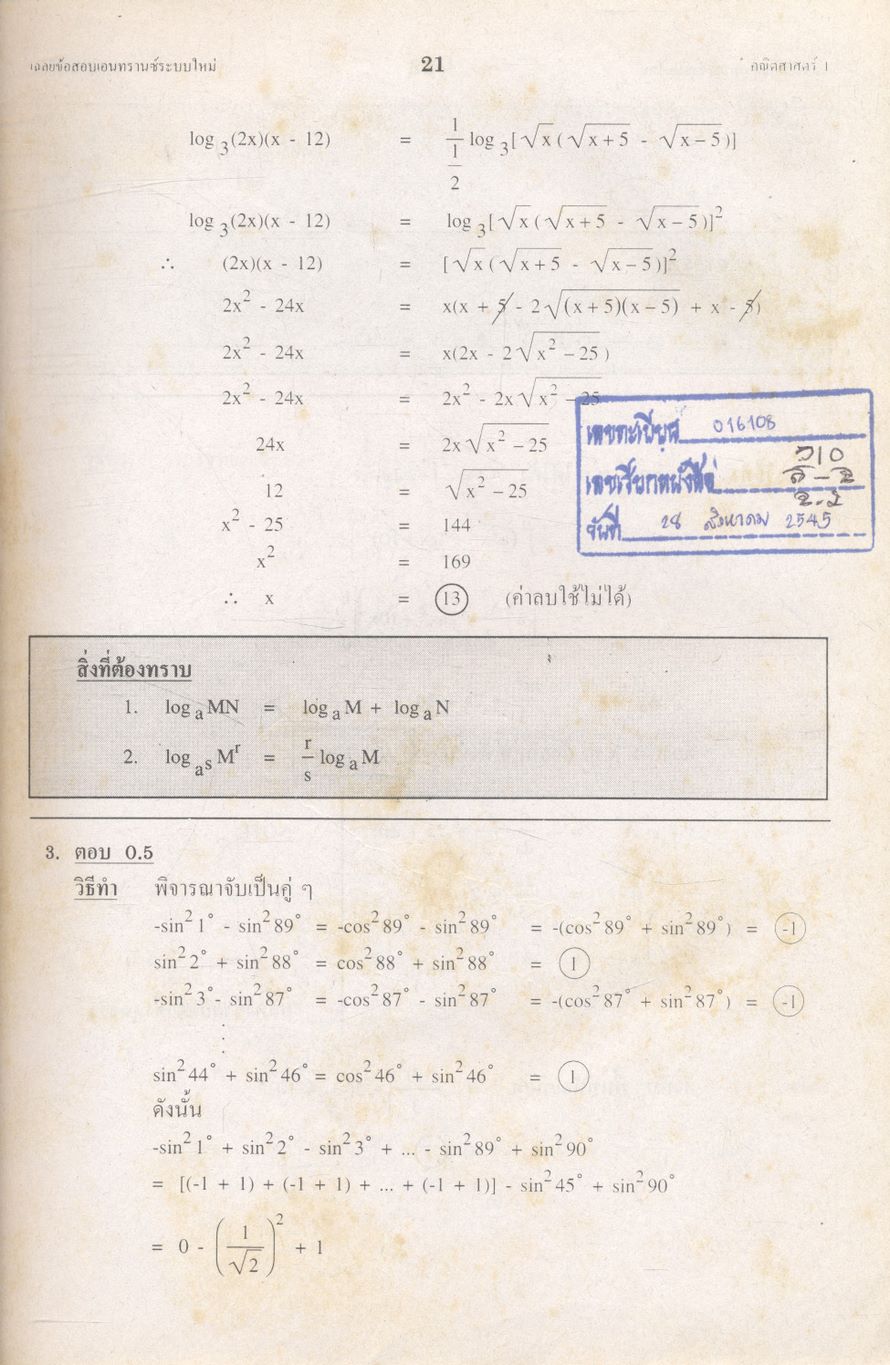 เฉลยข้อสอบเอนทรานซ์ระบบใหม่ 21 คณิตศาสตร์ 1
log₃(2x)(x - 12) = 1/(1/2) log₃[√x(√(x+5) - √(x-5))]
log₃(2x)(x - 12) = log₃[√x(√(x+5) - √(x-5))]²
∴ (2x)(x - 12) = [√x(√(x+5) - √(x-5))]²
2x² - 24x = x(x + 5 - 2√((x+5)(x-5)) + x - 5)
2x² - 24x = x(2x - 2√(x² - 25))
2x² - 24x = 2x² - 2x√(x² - 25)
24x = 2x√(x² - 25)
12 = √(x² - 25)
x² - 25 = 144
x² = 169
∴ x = 13 (ค่าลบใช้ไม่ได้)
เลขทะเบียน 016108
เลขเรียกหนังสือ
วันที่ 28 สิงหาคม 2545
สิ่งที่ต้องทราบ
1. logₐMN = logₐM + logₐN
2. log_(a^s) M^r = r/s logₐM
3. ตอบ 0.5
วิธีทำ พิจารณาจับเป็นคู่ ๆ
-sin²1° - sin²89° = -cos²89° - sin²89° = -(cos²89° + sin²89°) = -1
sin²2° + sin²88° = cos²88° + sin²88° = 1
-sin²3° - sin²87° = -cos²87° - sin²87° = -(cos²87° + sin²87°) = -1
⋮
sin²44° + sin²46° = cos²46° + sin²46° = 1
ดังนั้น
-sin²1° + sin²2° - sin²3° + ... - sin²89° + sin²90°
= [(-1 + 1) + (-1 + 1) + ... + (-1 + 1)] - sin²45° + sin²90°
= 0 - (1/√2)² + 1